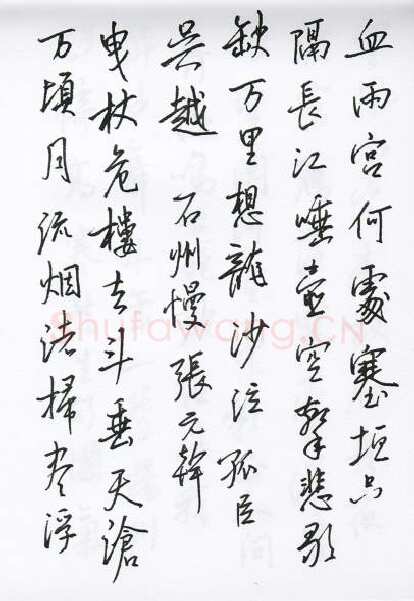 血两宫何處塞垣只
隔長江唾壺空擊悲歌
缺万里想龍沙泣孤臣
吴越 石州慢 張元幹
曳杖危樓去斗垂天滄
万頃月流烟渚掃尽浮
Shufawang.CN